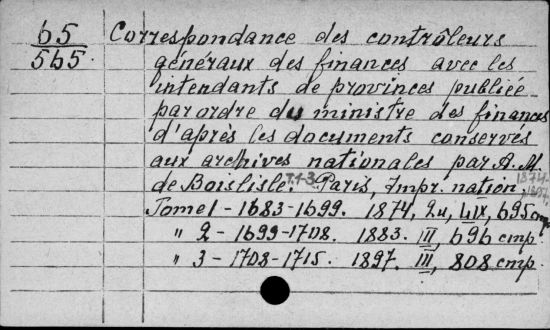 65
565.
Correspondance des contrôleurs
généraux des finances avec les
intendants de provinces publiée
par ordre du ministre des finances
d'après les documents conservés
aux archives nationales par A. M.
de Boislisle. T. 1-3 Paris, Impr. nation. 1874-1897.
Tome 1 - 1683-1699. 1874, 2н, LIX, 695 стр.
" 2 - 1699-1708. 1883. III, 696 стр.
" 3 - 1708-1715. 1897. III, 808 стр.